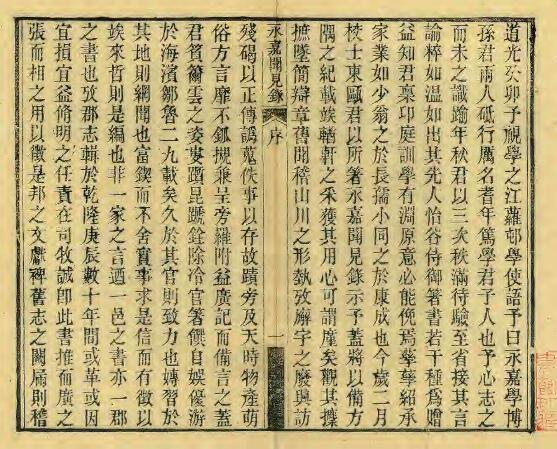 道光癸卯予視學之江蘿邨學使語予曰永嘉學博
孫君兩人砥行厲名者年篤學君子人也予心志之
而未之識踰年秋君以三次秩滿待驗至省接其言
論粹如溫如出其先人怡谷侍御箸書若干種爲贈
益知君稟承庭訓學有淵原意必能俛焉孳孳紹承
家業如少翁之於長孺小同之於康成也今歲二月
校士東甌君以所箸永嘉聞見錄示予蓋將以備方
隅之紀載竢輶軒之采獲其用心可謂廑矣觀其攗
摭墜簡辯章舊聞稽山川之形埶攷廨宇之廢興訪
永嘉聞見錄 序 一
殘碣以正傳譌蒐佚事以存故蹟旁及天時物產萌
俗方言靡不釽摫兼呈旁羅附益廣記而備言之蓋
君質爾雲之姿蹟昆蹏銓除冷官箸饌自娛優游
於海濱鄒魯二九載矣久於其官則致力也專習於
其地則綱聞也富鍥而不舍實事求是信而有徵以
竢來哲則是編也非一家之言迺一邑之書亦一郡
之書也攷郡志輯於乾隆庚辰數十年間或革或因
宜損宜益脩明之任責在司牧誠卽此書推而廣之
張而相之用以徵是邦之文獻裨舊志之闕扄則稽